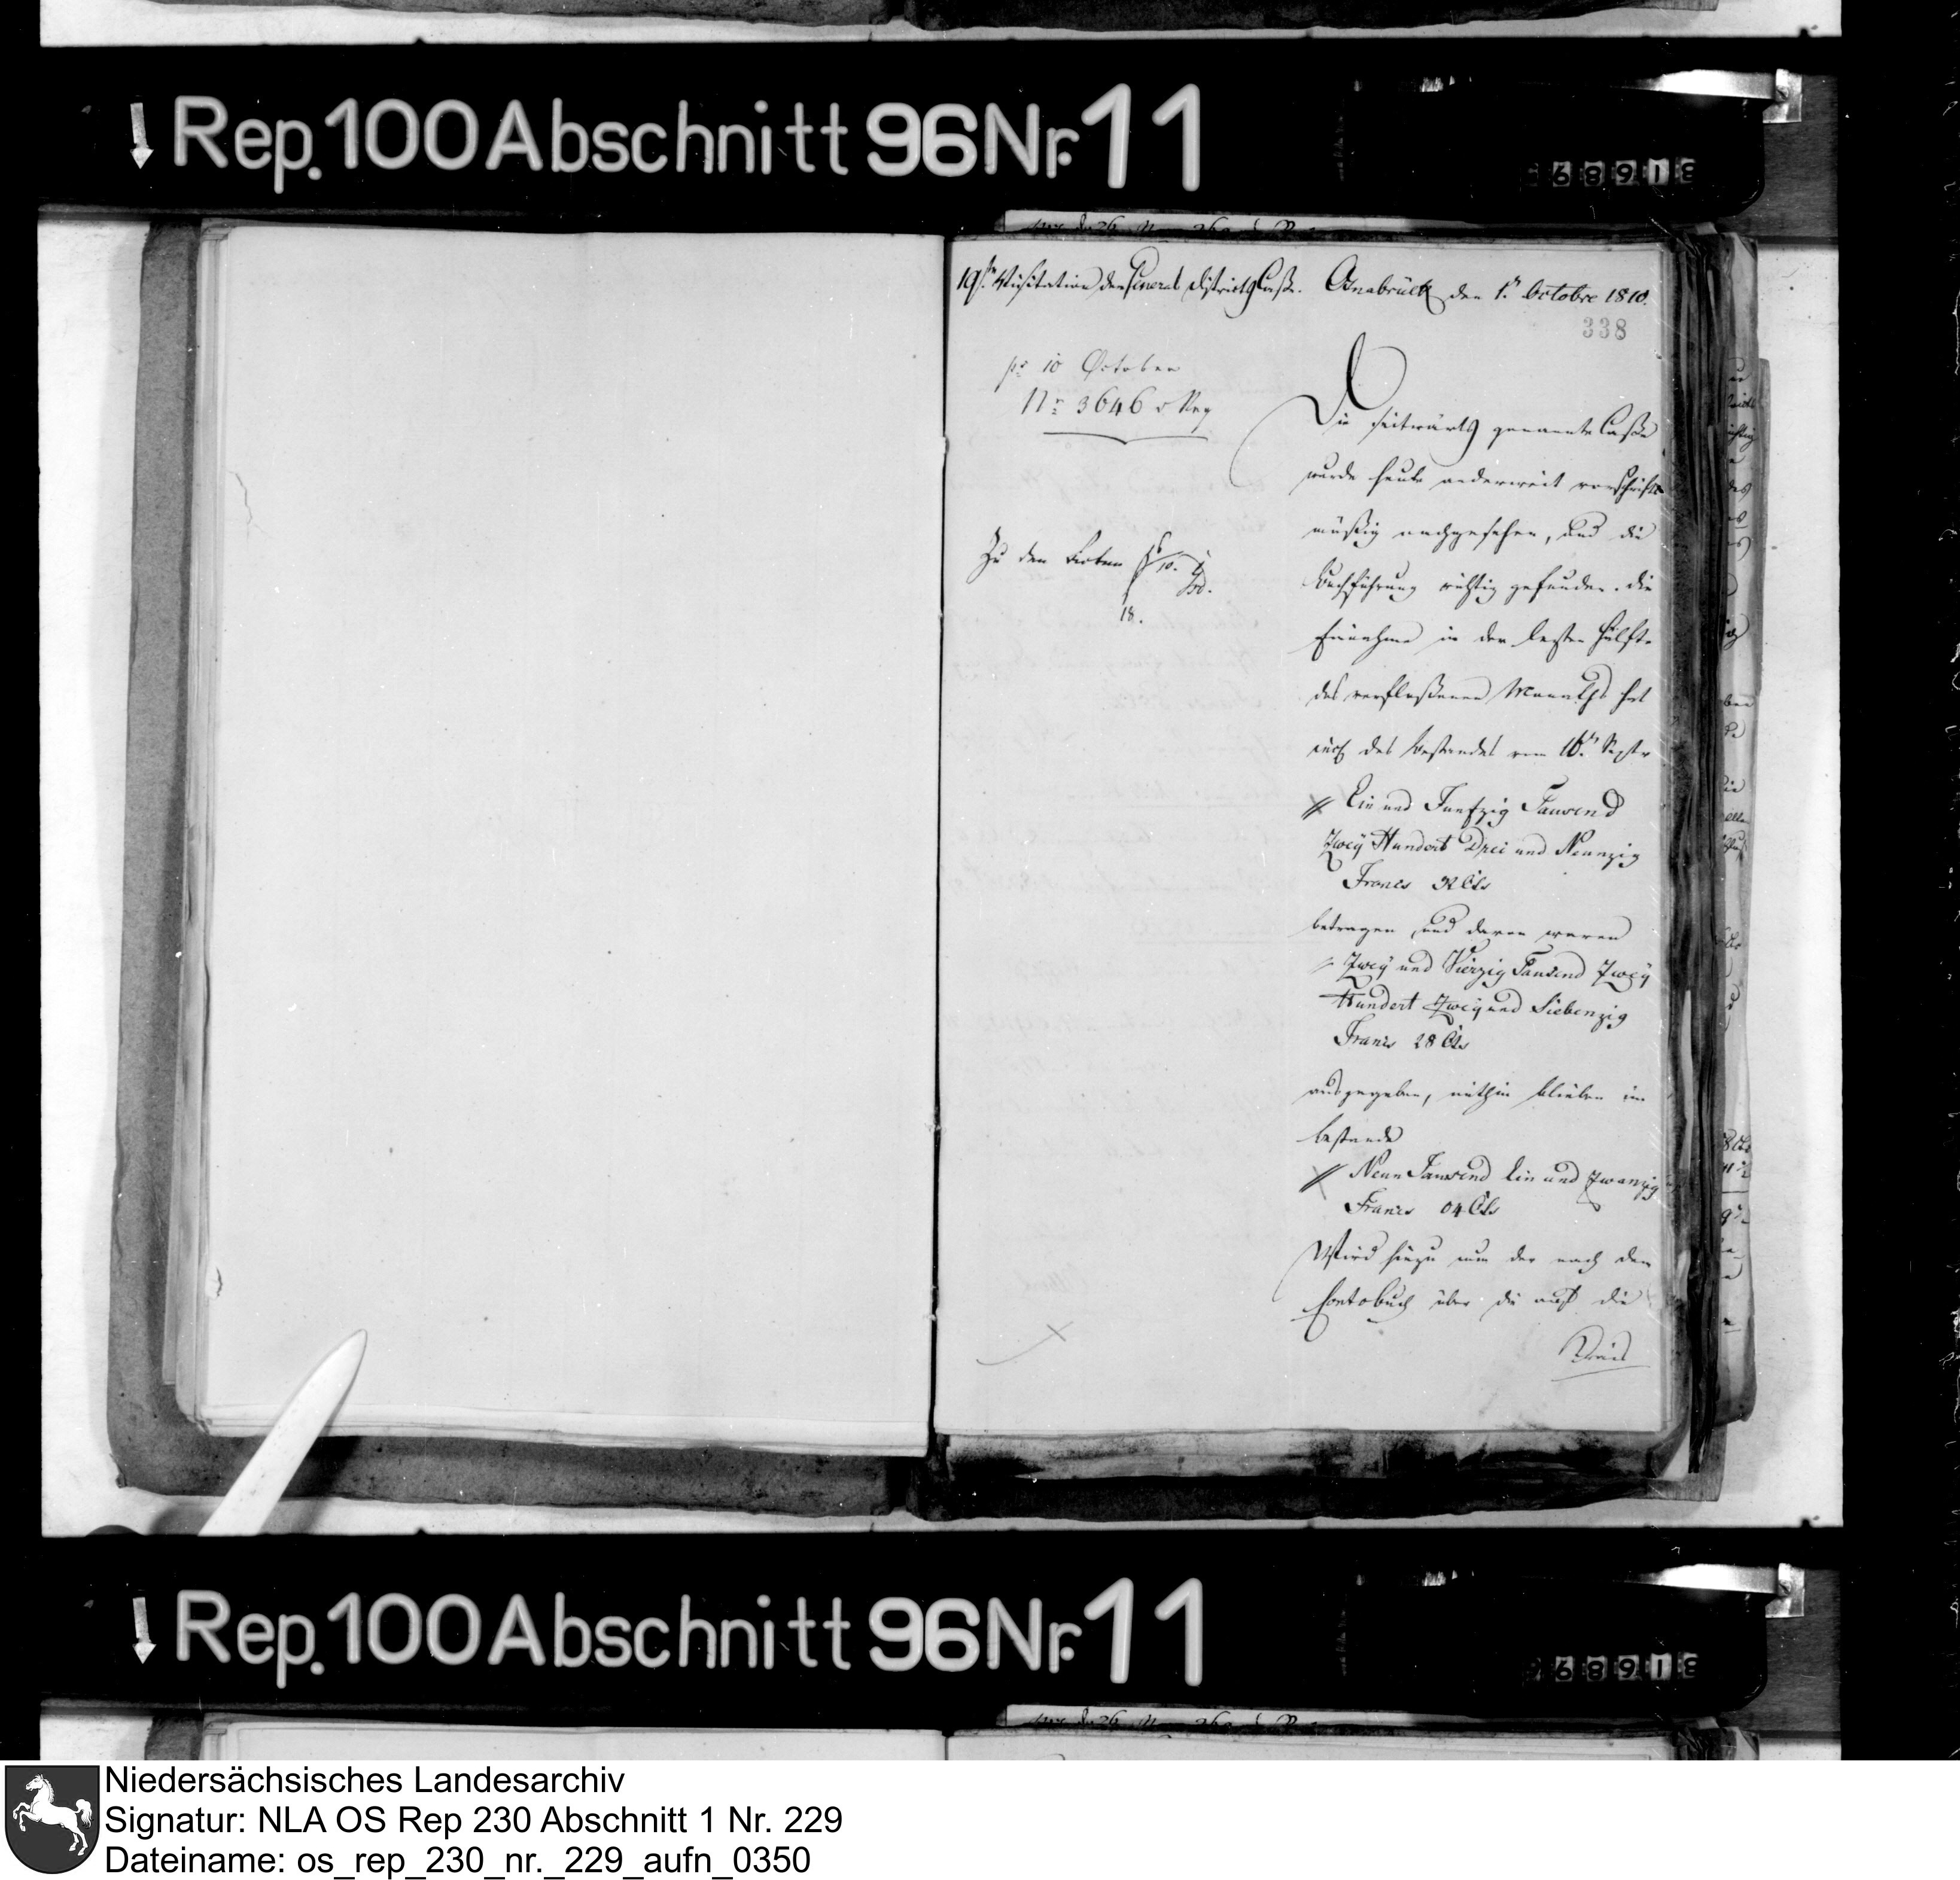 Rep. 100 Abschnitt 96 Nr. 11
68918
19te. Visitation der General Districts Casse. Osnabrück den 1tn. Octobre 1810.
338
pr 10 October
Nr 3646 Reg
Zu den Acten
10.
18.
Die seitwärts genannte Casse
wurde heute anderweit vorschrifts
mäßig nachgesehen, und die
Buchführung richtig gefunden. die
Einnahme in der lezten Hälfte
des verfloßenen Monaths hat
incl. des Bestandes vom 16ten. Septr
Ein und Funfzig Tausend
Zwey Hundert Drei und Neunzig
Francs 32 Cts
betragen und davon waren
Zwey und Vierzig Tausend Zwey
Hundert Zwey und Siebenzig
Francs 28 Cts
ausgegeben, mithin blieben im
Bestande
Neun Tausend Ein und Zwanzig
Francs 04 Cts
Wird hinzu nun der nach dem
Contobuch über die auf die
Rep. 100 Abschnitt 96 Nr. 11
68918
Niedersächsisches Landesarchiv
Signatur: NLA OS Rep 230 Abschnitt 1 Nr. 229
Dateiname: os_rep_230_nr._229_aufn_0350